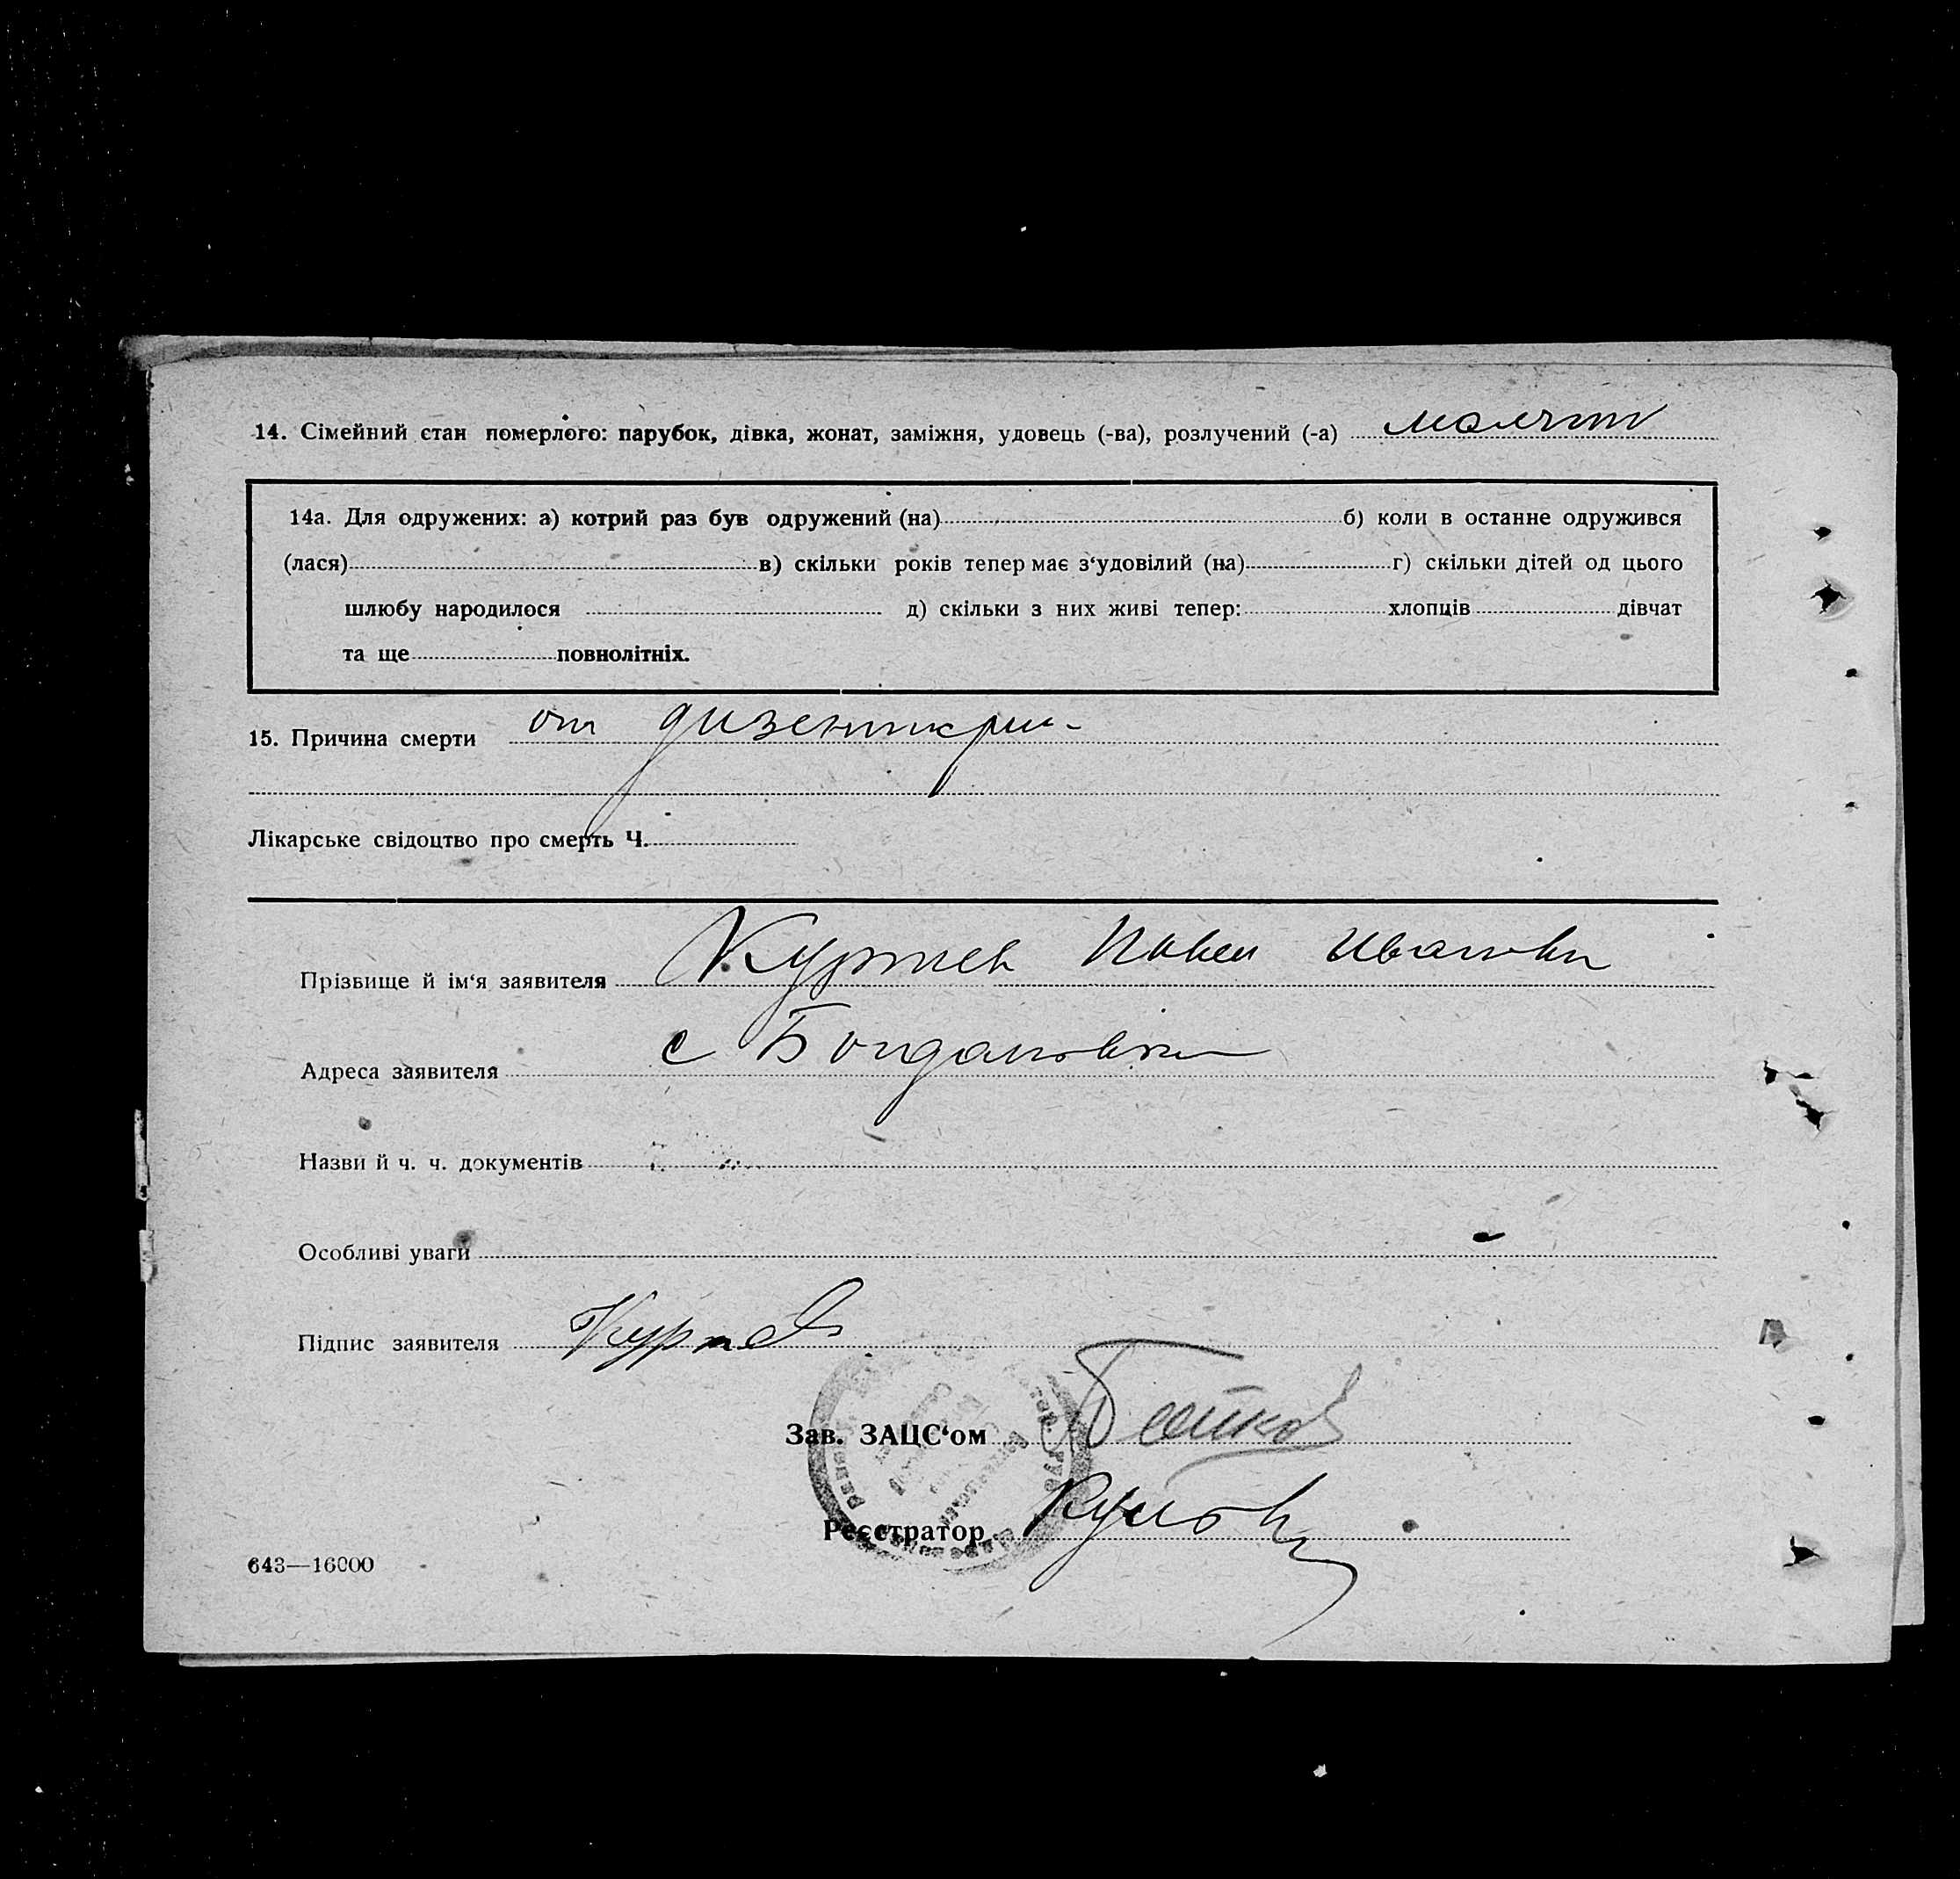 14. Сімейний стан померлого: парубок, дівка, жонат, заміжня, удовець (-ва), розлучений (-а)
14а. Для одружених: а) котрий раз був одружений (на) б) коли в останне одружився
(лася) в) скільки років тепер має з‘удовілий (на) г) скільки дітей од цього
шлюбу народилося д) скільки з них живі тепер: хлопців дівчат
та ще повнолітніх.
15. Причина смерти от дизентерии
Лікарське свідоцтво про смерть Ч.
Прізвище й ім‘я заявителя Куртев Павел Иванови
Адреса заявителя с Богдановка
Назви й ч. ч. документів
Особливі уваги
Підпис заявителя Куртев
Зав. ЗАЦС‘ом
Реєстратор
643—16000